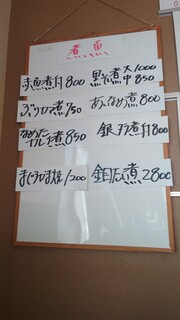 煮魚
赤魚煮付 800
黒そ煮 大1000
中850
ぶりカマ煮 750
あんなめ煮 800
なめた
カレイ煮 850
銀ダラ煮付 1800
まぐろかま焼 1200
金目だい煮 2800